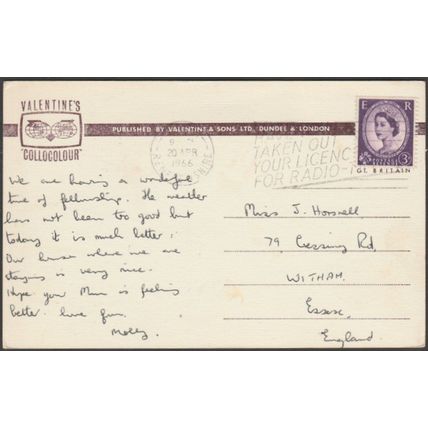 VALENTINE'S
"COLLOCOLOUR"
PUBLISHED BY VALENTINE & SONS LTD., DUNDEE & LONDON
20 APR
1966
TAKEN OUT
YOUR LICENC
FOR RADIO
E R
3D
GT. BRITAIN
We are having a wonderful
time of fellowship. The weather
has not been too good but
today it is much better.
Our house where we are
staying is very nice.
Hope your Mum is feeling
better. love from
Molly.
Miss J. Horsnell
79 Cressing Rd
WITHAM.
Essex.
England.